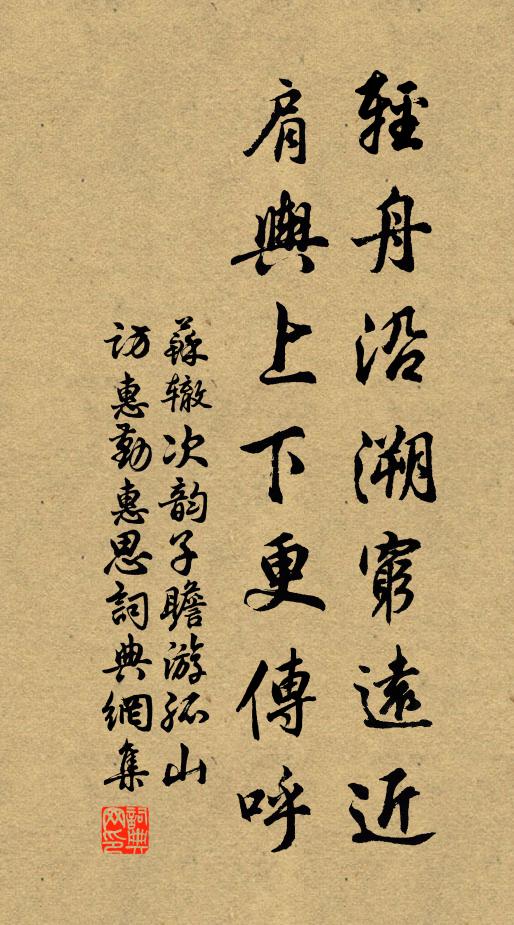 輕舟沿溯窮遠近
肩輿上下更傳呼
蘇辙次韵子瞻游孤山
訪惠勤惠思詞典網集
詞典网印